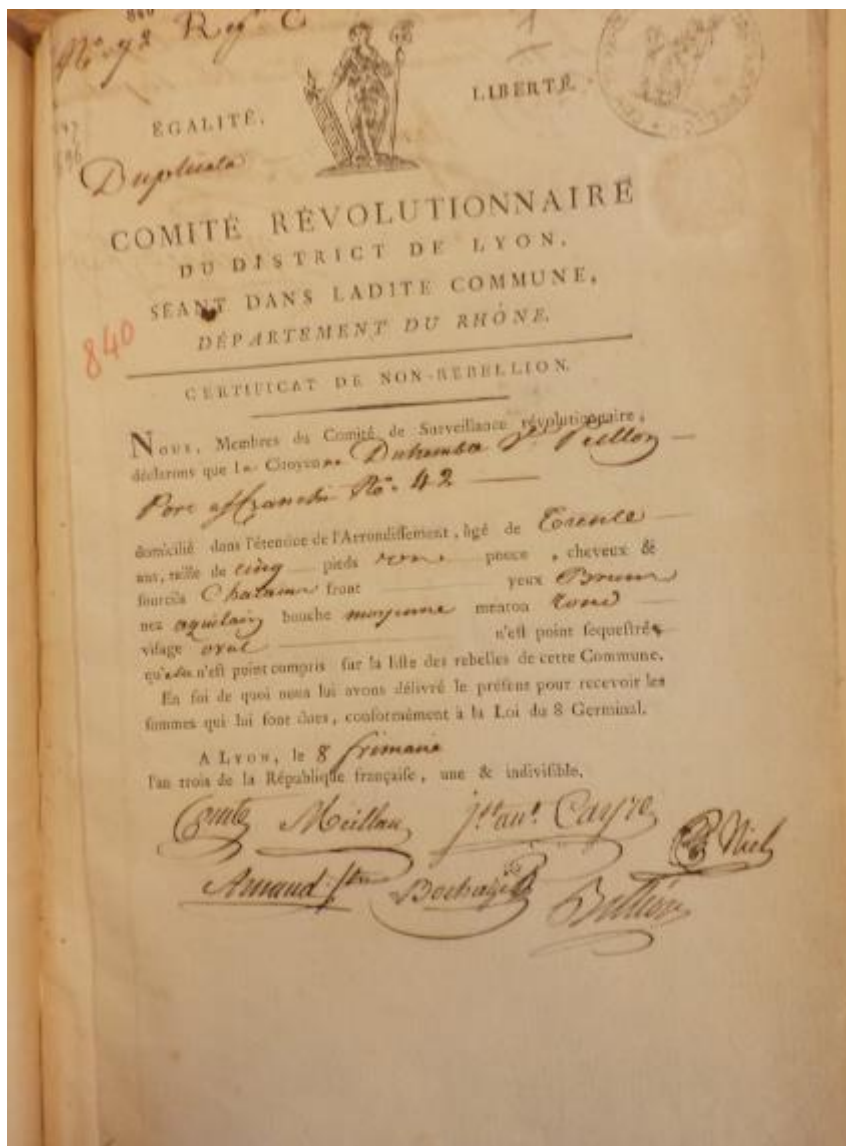 840
No. 92 Reg. C 1
ÉGALITÉ. LIBERTÉ.
Duplicata
COMITÉ RÉVOLUTIONNAIRE
DU DISTRICT DE LYON,
SÉANT DANS LADITE COMMUNE,
DÉPARTEMENT DU RHÔNE.
840
CERTIFICAT DE NON-REBELLION.
Nous, Membres du Comité de Surveillance révolutionnaire,
déclarons que la Citoyenne
Port affranchi No. 42
domicilié dans l'étendue de l'Arrondiſſement, âgé de Trente
ans, taille de cinq pieds pouce , cheveux &
ſourcils front yeux Bruns
nez aquilain bouche moyenne menton rond
viſage oval n'eſt point ſequeſtrée
qu'elle n'eſt point compris ſur la liſte des rebelles de cette Commune.
En foi de quoi nous lui avons délivré le préſent pour recevoir les
ſommes qui lui ſont dues, conformément à la Loi du 8 Germinal.
A LYON, le 8 frimaire
l'an trois de la République françaiſe, une & indiviſible.
Meillan Cayre Niel
Arnaud